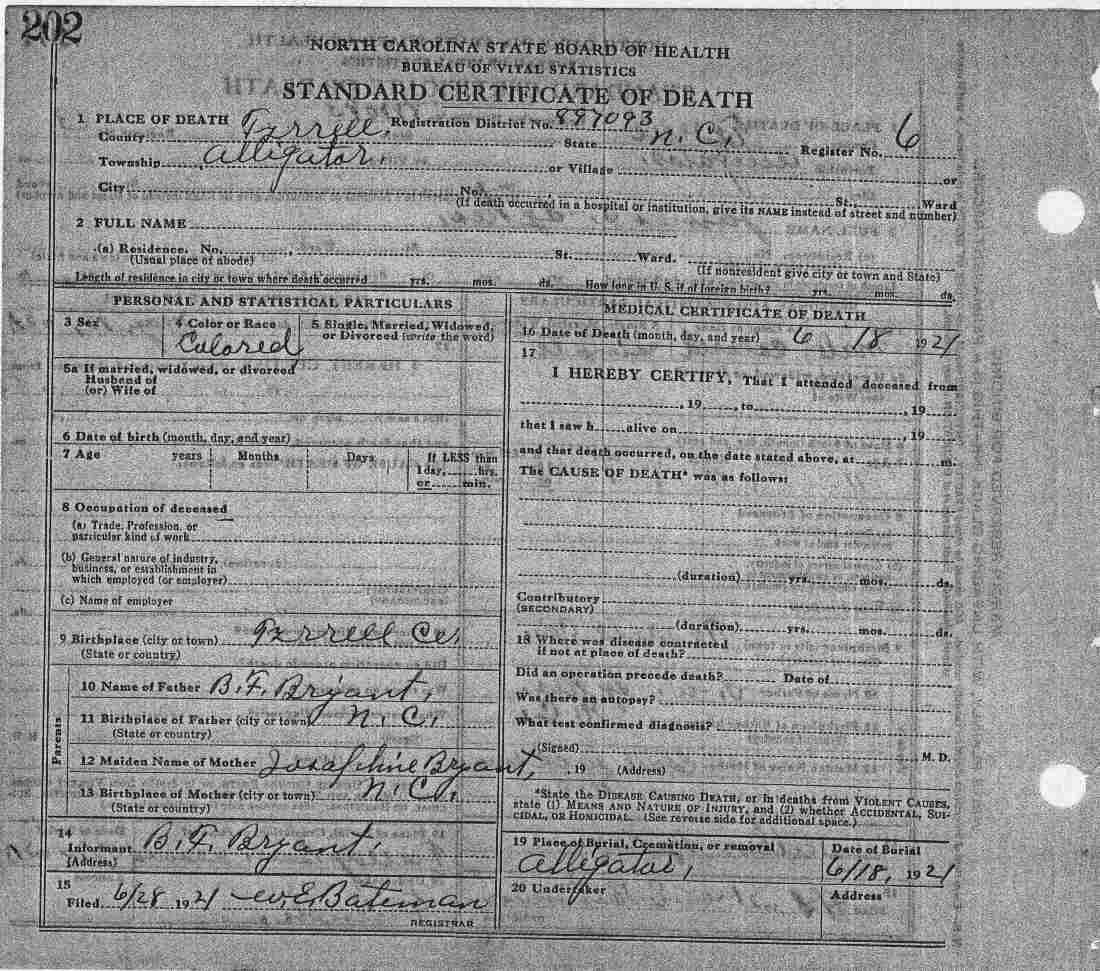 202
NORTH CAROLINA STATE BOARD OF HEALTH
BUREAU OF VITAL STATISTICS
STANDARD CERTIFICATE OF DEATH
1 PLACE OF DEATH Registration District No. 897093
County Tyrrell, State N. C. Register No. 6
Township Alligator, or Village or
City No. St., Ward
(If death occurred in a hospital or institution, give its NAME instead of street and number)
2 FULL NAME
(a) Residence. No. St. Ward.
(Usual place of abode) (If nonresident give city or town and State)
Length of residence in city or town where death occurred yrs. mos. ds. How long in U. S. if of foreign birth? yrs. mos. ds.
PERSONAL AND STATISTICAL PARTICULARS
3 Sex 4 Color or Race 5 Single, Married, Widowed, or Divorced (write the word)
Colored
5a If married, widowed, or divorced
Husband of
(or) Wife of
6 Date of birth (month, day, and year)
7 Age years Months Days If LESS than
1 day, hrs.
or min.
8 Occupation of deceased
(a) Trade, Profession, or
particular kind of work
(b) General nature of industry,
business, or establishment in
which employed (or employer)
(c) Name of employer
9 Birthplace (city or town) Tyrrell Co.
(State or country)
Parents
10 Name of Father B. F. Bryant,
11 Birthplace of Father (city or town) N. C.
(State or country)
12 Maiden Name of Mother Josaphine Bryant,
13 Birthplace of Mother (city or town) N. C.
(State or country)
14
Informant B. F. Bryant,
(Address)
15
Filed 6/28 1921 W. E. Bateman
REGISTRAR
MEDICAL CERTIFICATE OF DEATH
16 Date of Death (month, day, and year) 6 18 1921
17
I HEREBY CERTIFY, That I attended deceased from
, 19 , to , 19
that I saw h alive on , 19
and that death occurred, on the date stated above, at m.
The CAUSE OF DEATH* was as follows:
(duration) yrs. mos. ds.
Contributory
(SECONDARY)
(duration) yrs. mos. ds.
18 Where was disease contracted
if not at place of death?
Did an operation precede death? Date of
Was there an autopsy?
What test confirmed diagnosis?
(Signed) M. D.
, 19 (Address)
*State the DISEASE CAUSING DEATH, or in deaths from VIOLENT CAUSES,
state (1) MEANS AND NATURE OF INJURY, and (2) whether ACCIDENTAL, SUI-
CIDAL, or HOMICIDAL. (See reverse side for additional space.)
19 Place of Burial, Cremation, or removal Date of Burial
Alligator, 6/18, 1921
20 Undertaker Address